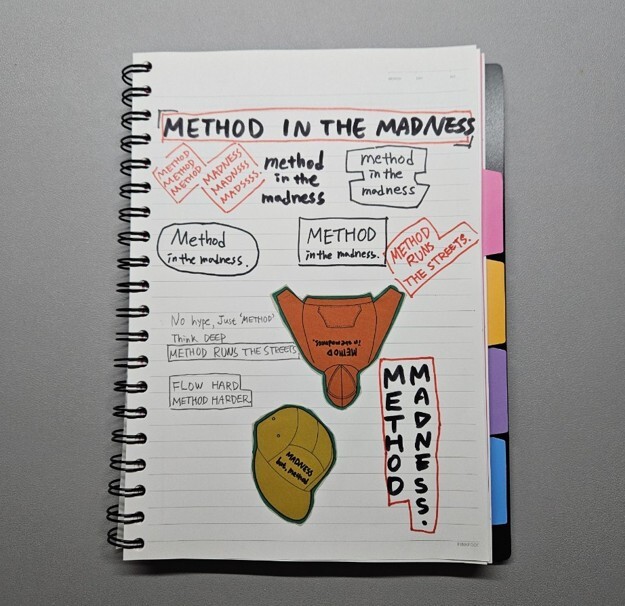 METHOD IN THE MADNESS
METHOD
METHOD
METHOD
MADNESS
MADNSSS
MADSSSS.
method
in the
madness
method
in the
madness
Method
in the madness.
METHOD
in the madness.
METHOD
RUNS
THE STREETS.
No hype, Just 'METHOD'
Think DEEP
METHOD RUNS THE STREETS
FLOW HARD
METHOD HARDER
METHOD
in the madness.
MADNESS
but, method
METHOD
MADNESS.